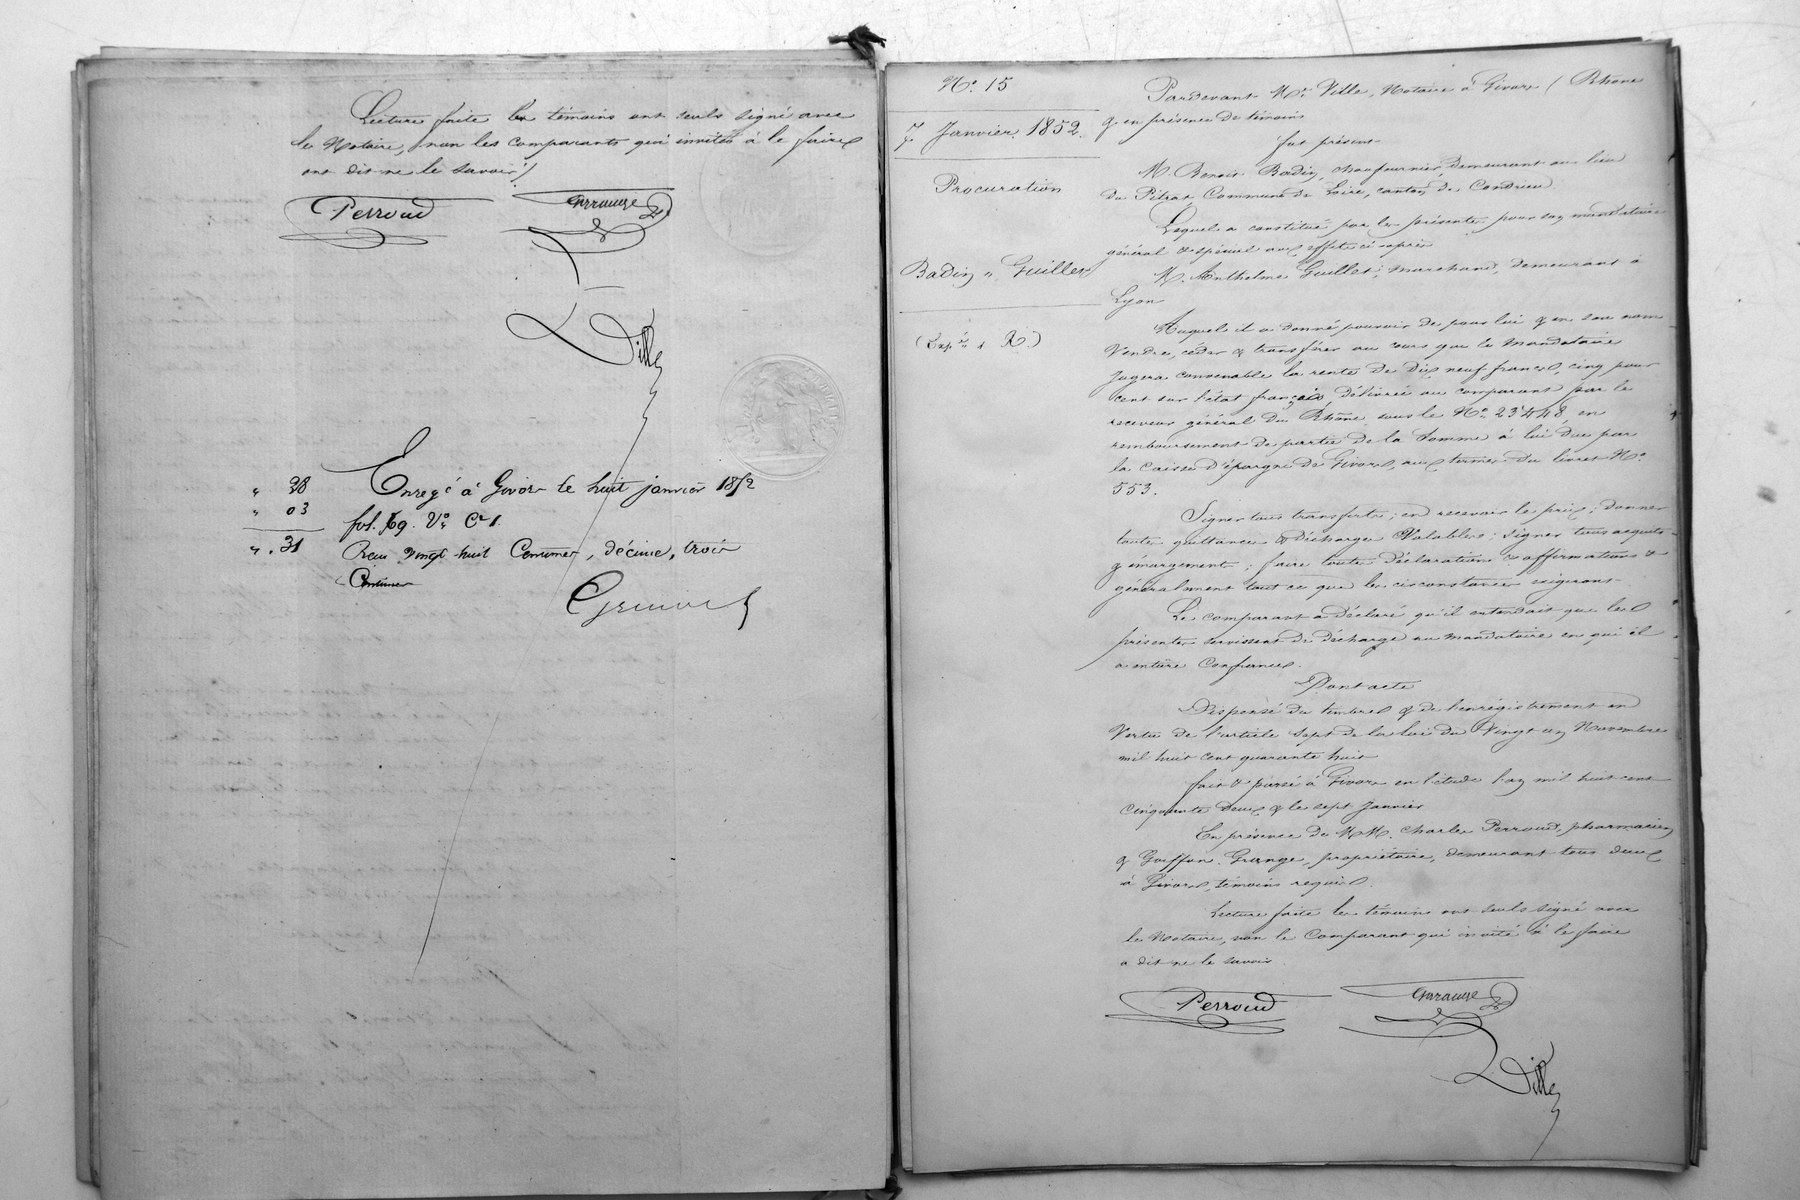 Lecture faite les témoins ont seuls signé avec
le Notaire, non les comparants qui invités à le faire
ont dit ne le savoir /
Perroud Grange
Ville
" 28
" 03
" . 31
Enregé à Givors le huit janvier 1852
fol. 69. Vo. Ce 1.
Reçu vingt huit Centimes, décime, trois
Centimes
No. 15
7 Janvier 1852.
Procuration
Badin à Guillet
Pardevant Me. Ville, Notaire à Givors (Rhône
& en présence de témoins
fut présent
M. Benoit Badin, chaufournier, demeurant au lieu
du Pétrat, Commune de Loire, canton de Condrieu.
Lequel a constitué par les présentes pour son mandataire
général & spécial aux effets ci après
M. Anthelme Guillet, marchand, demeurant à
Lyon
Auquel il a donné pouvoir de pour lui & en son nom
Vendre, céder & transférer au cours que le mandataire
jugera convenable la rente de dix neuf francs, cinq pour
cent sur l'état français, délivrée au comparant par le
receveur général du Rhône sous le No. 23448 en
remboursement de partie de la somme à lui due par
la Caisse d'épargne de Givors, aux termes du livret No.
553.
Signer tous transferts; en recevoir le prix; donner
toutes quittances & décharges Valables; signer tous acquits
& émargement; faire toutes déclarations & affirmations &
généralement tout ce que les circonstances exigeront
Le comparant a déclaré qu'il entendait que les
présentes servissent de décharge au mandataire en qui il
a entière Confiance.
Dont acte
Dispensé du timbre & de l'enrégistrement en
Vertu de l'article sept de la loi du Vingt un Novembre
mil huit cent quarante huit
fait & passé à Givors en l'étude l'an mil huit cent
cinquante deux & le sept Janvier
En présence de MM. Charles Perroud, pharmacien
& Goiffon Grange, propriétaire, demeurant tous deux
à Givors, témoins requis.
Lecture faite les témoins ont seuls signé avec
le Notaire, non le Comparant qui invité à le faire
a dit ne le savoir
Perroud Grange
Ville